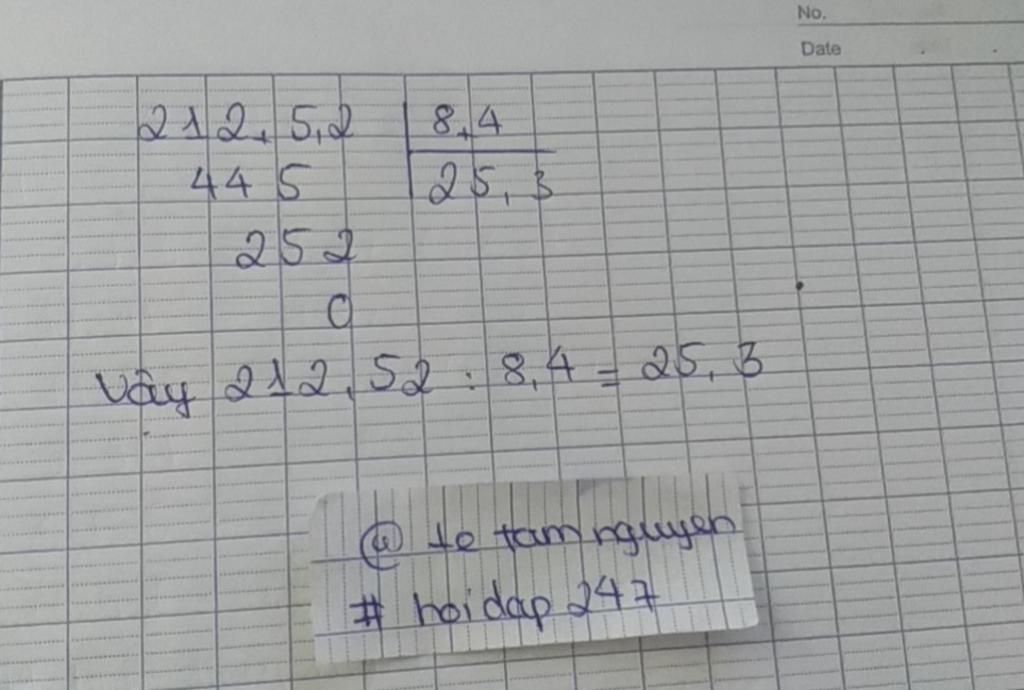 No.
Date
212,5,2 8,4
445 25,3
252
0
Vậy 212,52 : 8,4 = 25,3
@ le tam nguyen
# hoidap 247